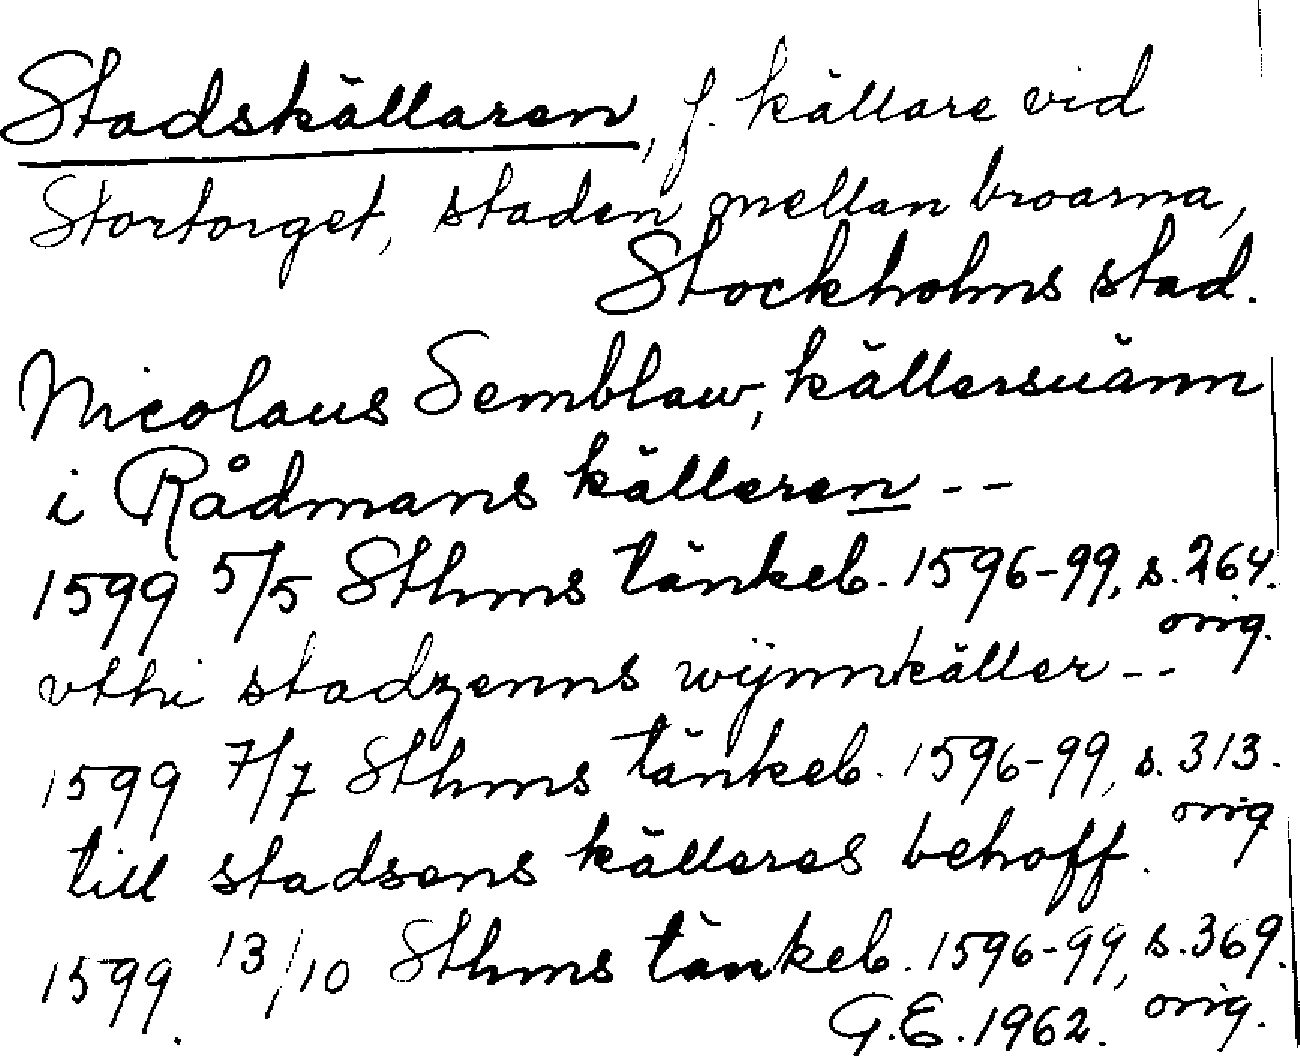 Stadskällaren, f. källare vid
Stortorget, staden mellan broarna,
Stockholms stad.
Nicolaus Semblaw, källersuänn
i Rådmans källeren --
1599 5/5 Sthms tänkeb. 1596-99, s. 264.
orig.
vthi stadzenns wijnnkäller --
1599 7/7 Sthms tänkeb. 1596-99, s. 313.
orig
till stadsens källeres behoff.
1599. 13/10 Sthms tänkeb. 1596-99, s. 369.
orig.
G.E. 1962.